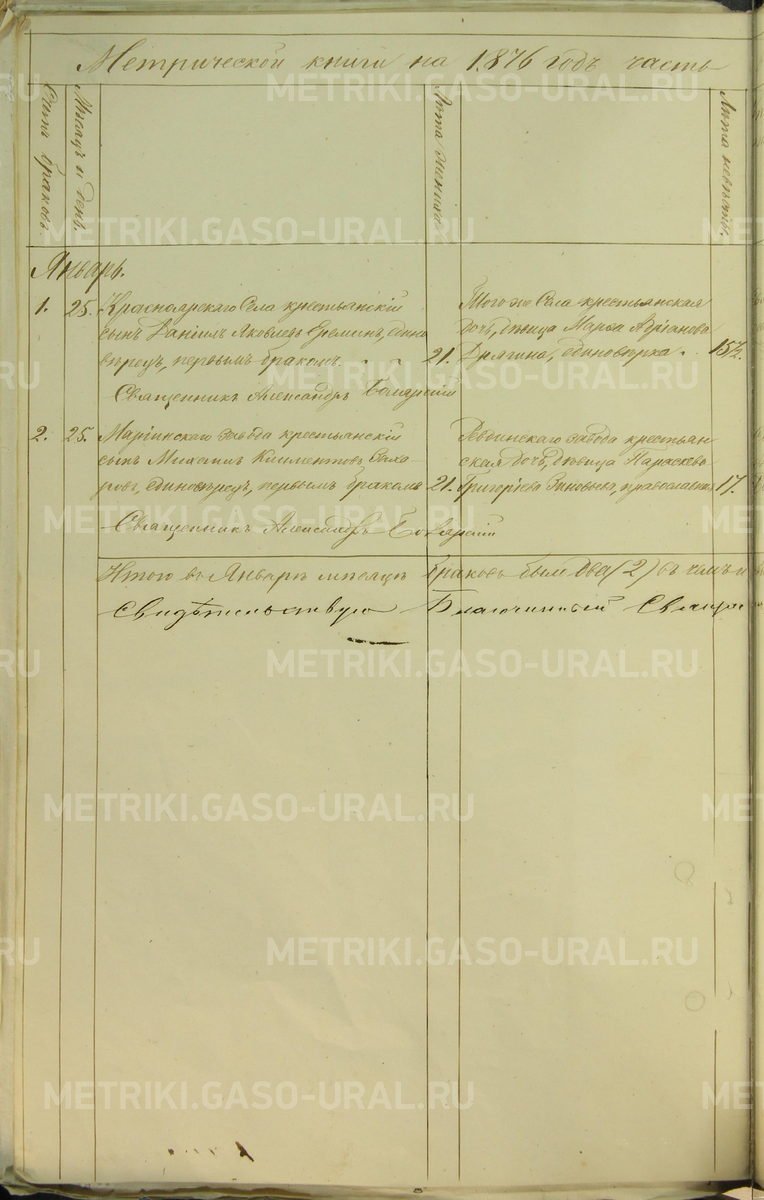 Метрической книги на 1876 годъ часть
Счетъ браковъ.
Мѣсяцъ и день.
Лѣта жениха.
Лѣта невѣсты.
Январь.
1. 25. Красноярскаго Села крестьянскій
сынъ Даніилъ Яковлевъ Ереминъ, едино
вѣрецъ, первымъ бракомъ. 21.
Священникъ Александръ
Того же Села крестьянская
дочь, дѣвица Марѳа Адріанова
единовѣрка. 15½.
2. 25. Маріинскаго завода крестьянскій
сынъ Михаилъ Климентовъ Саха
ровъ, единовѣрецъ, первымъ бракомъ 21.
Священникъ Александръ
Ревдинскаго завода крестьян
ская дочь, дѣвица Параскева
Григорьева православная 17.
Итого въ Январѣ мѣсяцѣ браковъ было два (2) въ чемъ и
Свидѣтельствую Благочинный Священ
METRIKI.GASO-URAL.RU